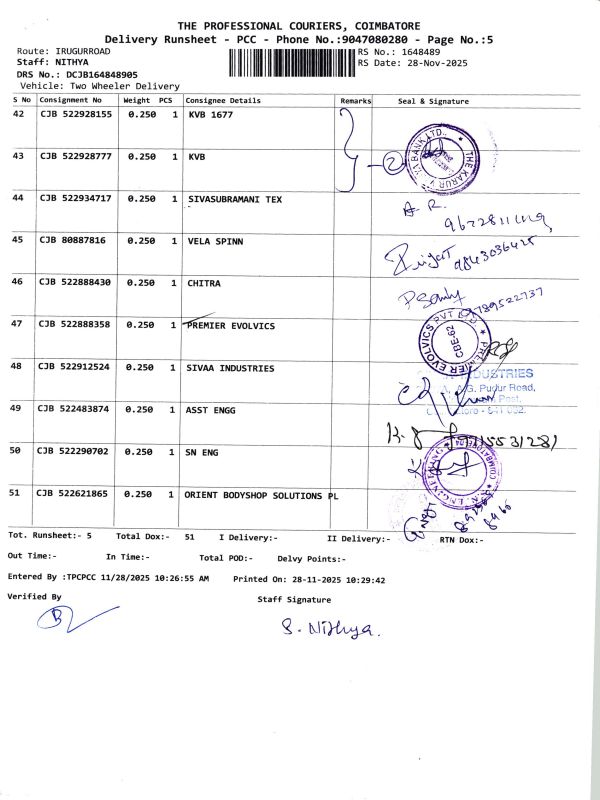 THE PROFESSIONAL COURIERS, COIMBATORE
Delivery Runsheet - PCC - Phone No.:9047080280 - Page No.:5
Route: IRUGURROAD RS No.: 1648489
Staff: NITHYA RS Date: 28-Nov-2025
DRS No.: DCJB164848905
Vehicle: Two Wheeler Delivery
S No Consignment No Weight PCS Consignee Details Remarks Seal & Signature
42 CJB 522928155 0.250 1 KVB 1677
43 CJB 522928777 0.250 1 KVB 2
44 CJB 522934717 0.250 1 SIVASUBRAMANI TEX
45 CJB 80887816 0.250 1 VELA SPINN
46 CJB 522888430 0.250 1 CHITRA
9789522737
47 CJB 522888358 0.250 1 PREMIER EVOLVICS
PREMIER EVOLVICS PVT LTD
CBE-62
48 CJB 522912524 0.250 1 SIVAA INDUSTRIES
49 CJB 522483874 0.250 1 ASST ENGG
50 CJB 522290702 0.250 1 SN ENG
51 CJB 522621865 0.250 1 ORIENT BODYSHOP SOLUTIONS PL
Tot. Runsheet:- 5 Total Dox:- 51 I Delivery:- II Delivery:- RTN Dox:-
Out Time:- In Time:- Total POD:- Delvy Points:-
Entered By :TPCPCC 11/28/2025 10:26:55 AM Printed On: 28-11-2025 10:29:42
Verified By Staff Signature
S. Nithya.